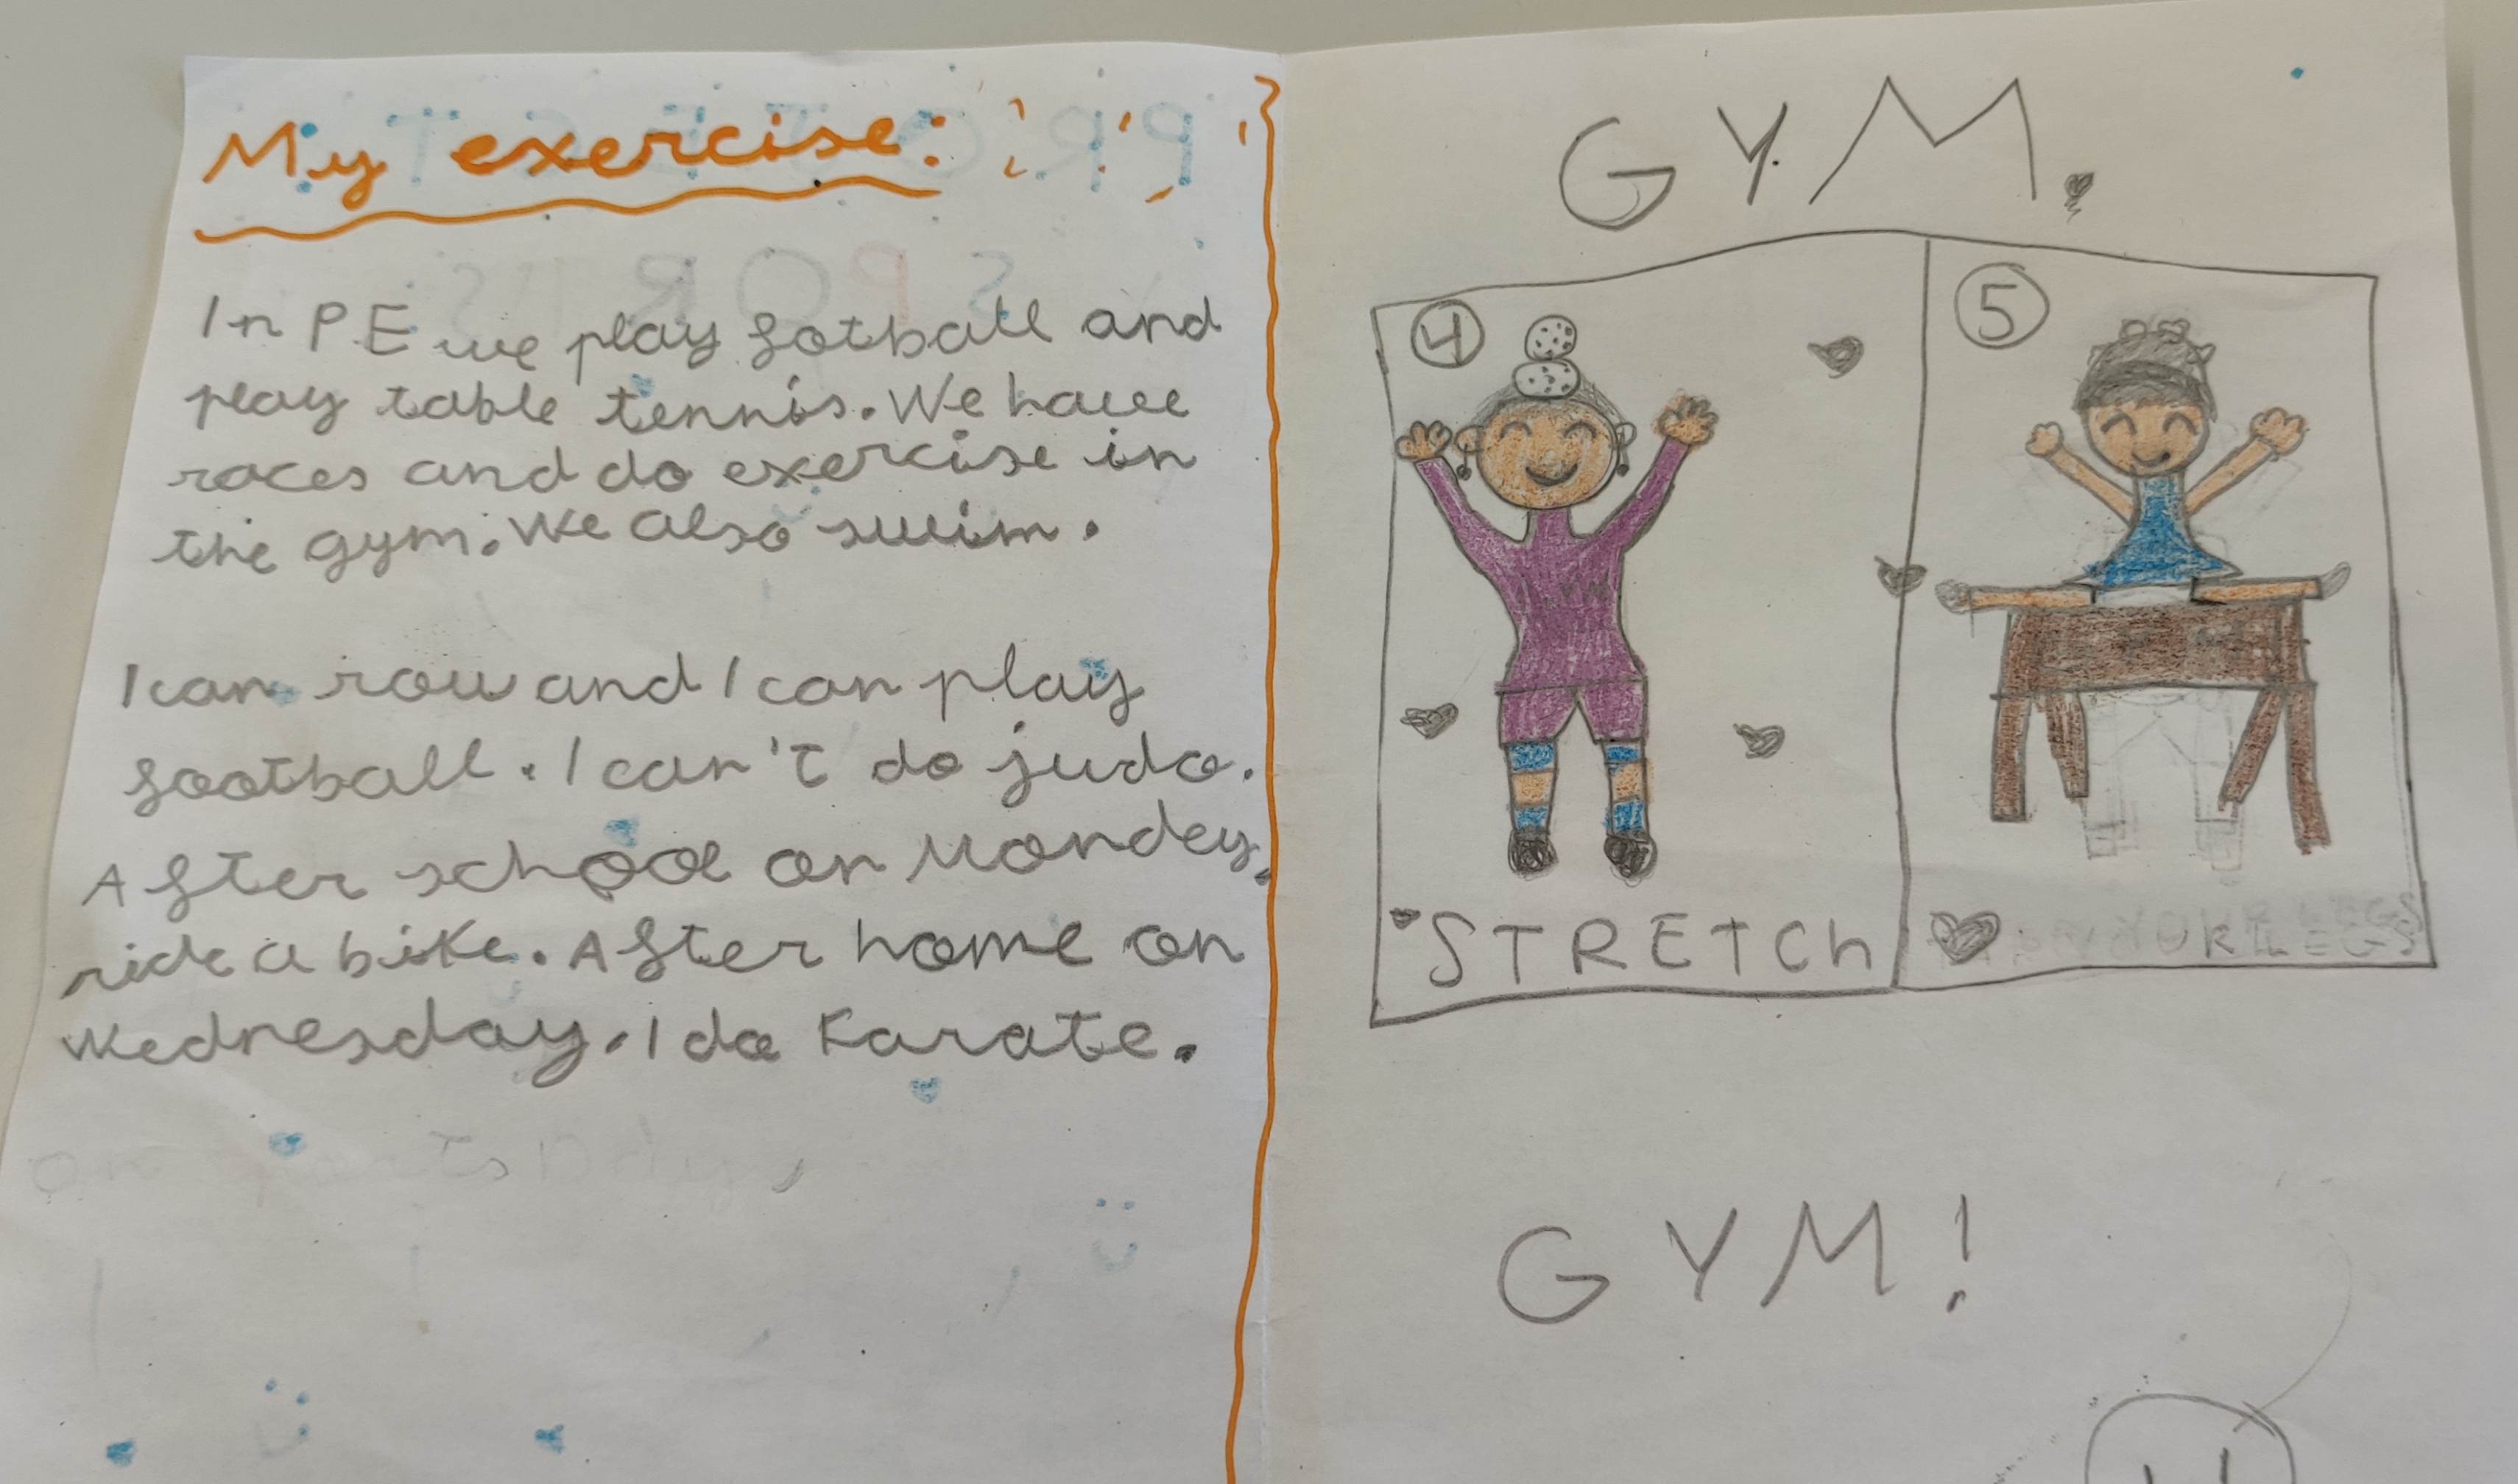 My exercise:
In PE we play fotball and
play table tennis. We have
races and do exercise in
the gym. We also swim.
I can row and I can play
football. I can't do judo.
After school on Mondey,
ride a bike. After home on
Wednesday. I do Karate.
GYM.
4
5
STRETCh
YOUR LEGS
GYM!